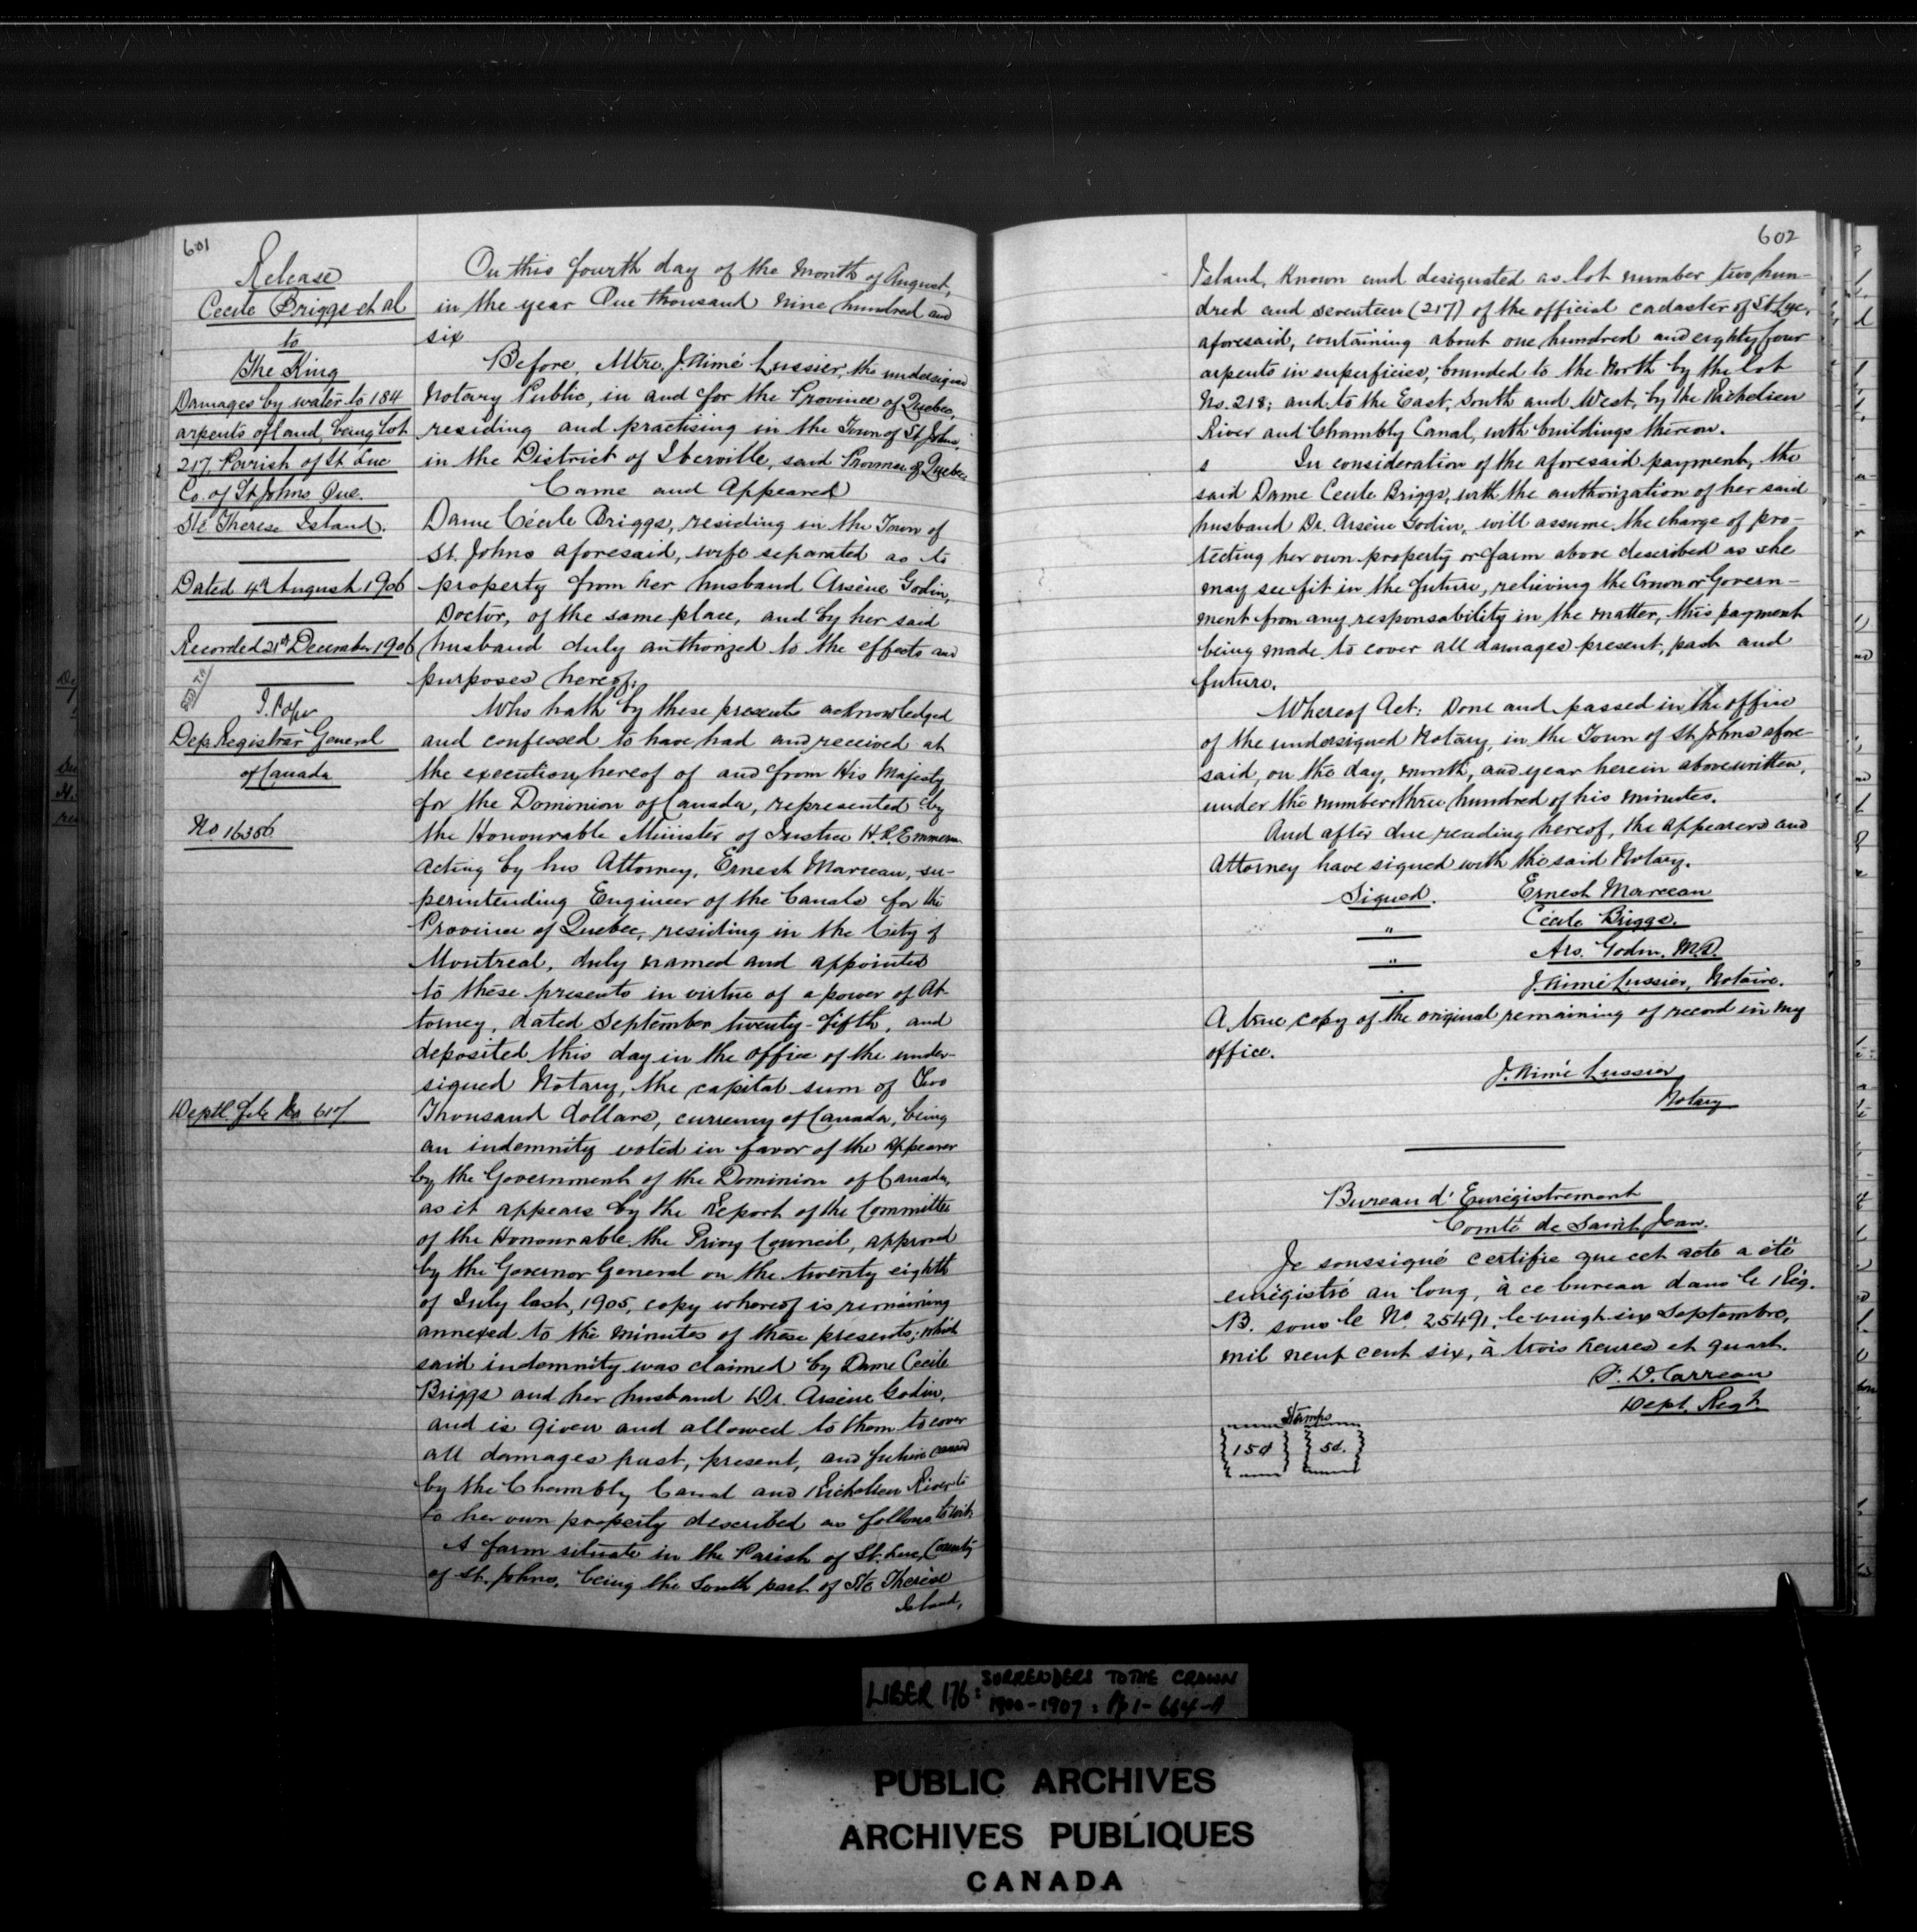 601
Release
Cecile Briggs et al
to
The King
Damages by water to 184
arpents of land, being lot
217, Parish of St. Luc
Co. of St Johns Que.
Ste Therese Island.
Dated 4th August 1906
Recorded 21st December 1906
J. Pope
Dep. Registrar General
of Canada
No. 16356
Deptl. file No. 617
On this fourth day of the month of August,
in the year One thousand nine hundred and
six
Before, Mtre. J. Aimé Lussier, the undersigned
Notary Public, in and for the Province of Quebec,
residing and practising in the Town of St Johns,
in the District of Iberville, said Province of Quebec
Came and Appeared
Dame Cécile Briggs, residing in the Town of
St. Johns aforesaid, wife separated as to
property from her husband Arsène Godin,
Doctor, of the same place, and by her said
husband duly authorized to the effects and
purposes hereof.
Who hath by these presents acknowledged
and confessed to have had and received at
the execution hereof of and from His Majesty
for the Dominion of Canada, represented by
the Honourable Minister of Justice H. R. Emmerson
acting by his Attorney, Ernest Marceau, su-
perintending Engineer of the Canals for the
Province of Quebec, residing in the City of
Montreal, duly named and appointed
to these presents in virtue of a power of At-
torney, dated September twenty-fifth, and
deposited this day in the office of the under-
signed Notary, the capital sum of Two
Thousand dollars, currency of Canada, being
an indemnity voted in favor of the appearer
by the Government of the Dominion of Canada,
as it appears by the Report of the Committee
of the Honourable the Privy Council, approved
by the Governor General on the twenty eighth
of July last, 1905, copy whereof is remaining
annexed to the minutes of these presents; which
said indemnity was claimed by Dame Cecile
Briggs and her husband Dr. Arsène Godin,
and is given and allowed to them to cover
all damages past, present, and future caused
by the Chambly Canal and Richelieu River to
to her own property described as follows to wit:
A farm situate in the Parish of St. Luc, County
of St. Johns, being the South part of Ste Thérèse
Island,
602
Island, known and designated as lot number two hun-
dred and seventeen (217) of the official cadaster of St. Luc,
aforesaid, containing about one hundred and eighty four
arpents in superficies, bounded to the North by the lot
No. 218; and to the East, South and West, by the Richelieu
River and Chambly Canal, with buildings thereon.
In consideration of the aforesaid payment, the
said Dame Cecile Briggs, with the authorization of her said
husband Dr. Arsène Godin, will assume the charge of pro-
tecting her own property or farm above described as she
may see fit in the future, relieving the Crown or Govern-
ment from any responsability in the matter, this payment
being made to cover all damages present, past and
future.
Whereof Act: Done and passed in the office
of the undersigned Notary, in the Town of St Johns afore-
said, on the day, month, and year herein above written,
under the number three hundred of his minutes.
And after due reading hereof, the appearers and
Attorney have signed with the said Notary.
Signed. Ernest Marceau
" Cécile Briggs.
" Ars. Godin. M.D.
J. Aimé Lussier, Notaire.
A true copy of the original remaining of record in my
office.
J. Aimé Lussier
Notary
Bureau d'Enrégistrement
Comté de Saint Jean.
Je soussigné certifie que cet acte a été
enrégistré au long, à ce bureau dans le Rég.
B. sous le No 25491, le vingt six Septembre,
mil neuf cent six, à trois heures et quart.
P. D. Carreau
Dept. Regt.
Stamps
15¢ 5¢.
LIBER 176: SURRENDERS TO THE CROWN
1900-1907: Pp 1-664-A
PUBLIC ARCHIVES
ARCHIVES PUBLIQUES
CANADA